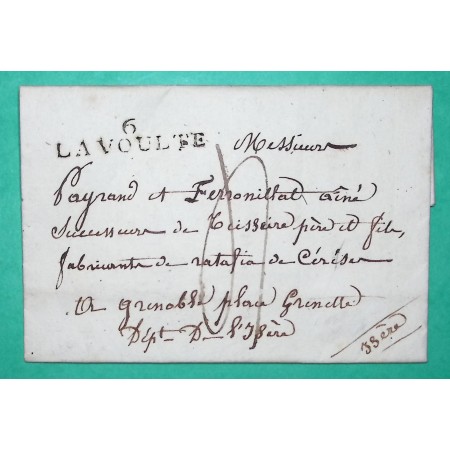 6
LAVOULTE
Messieurs
Payrand et Ferronillat aîné
Successeurs de Teisseire père et fils,
fabricants de ratafia de Cérises
A grenoble place Grenette
Dépt. De l'Isère
Isère